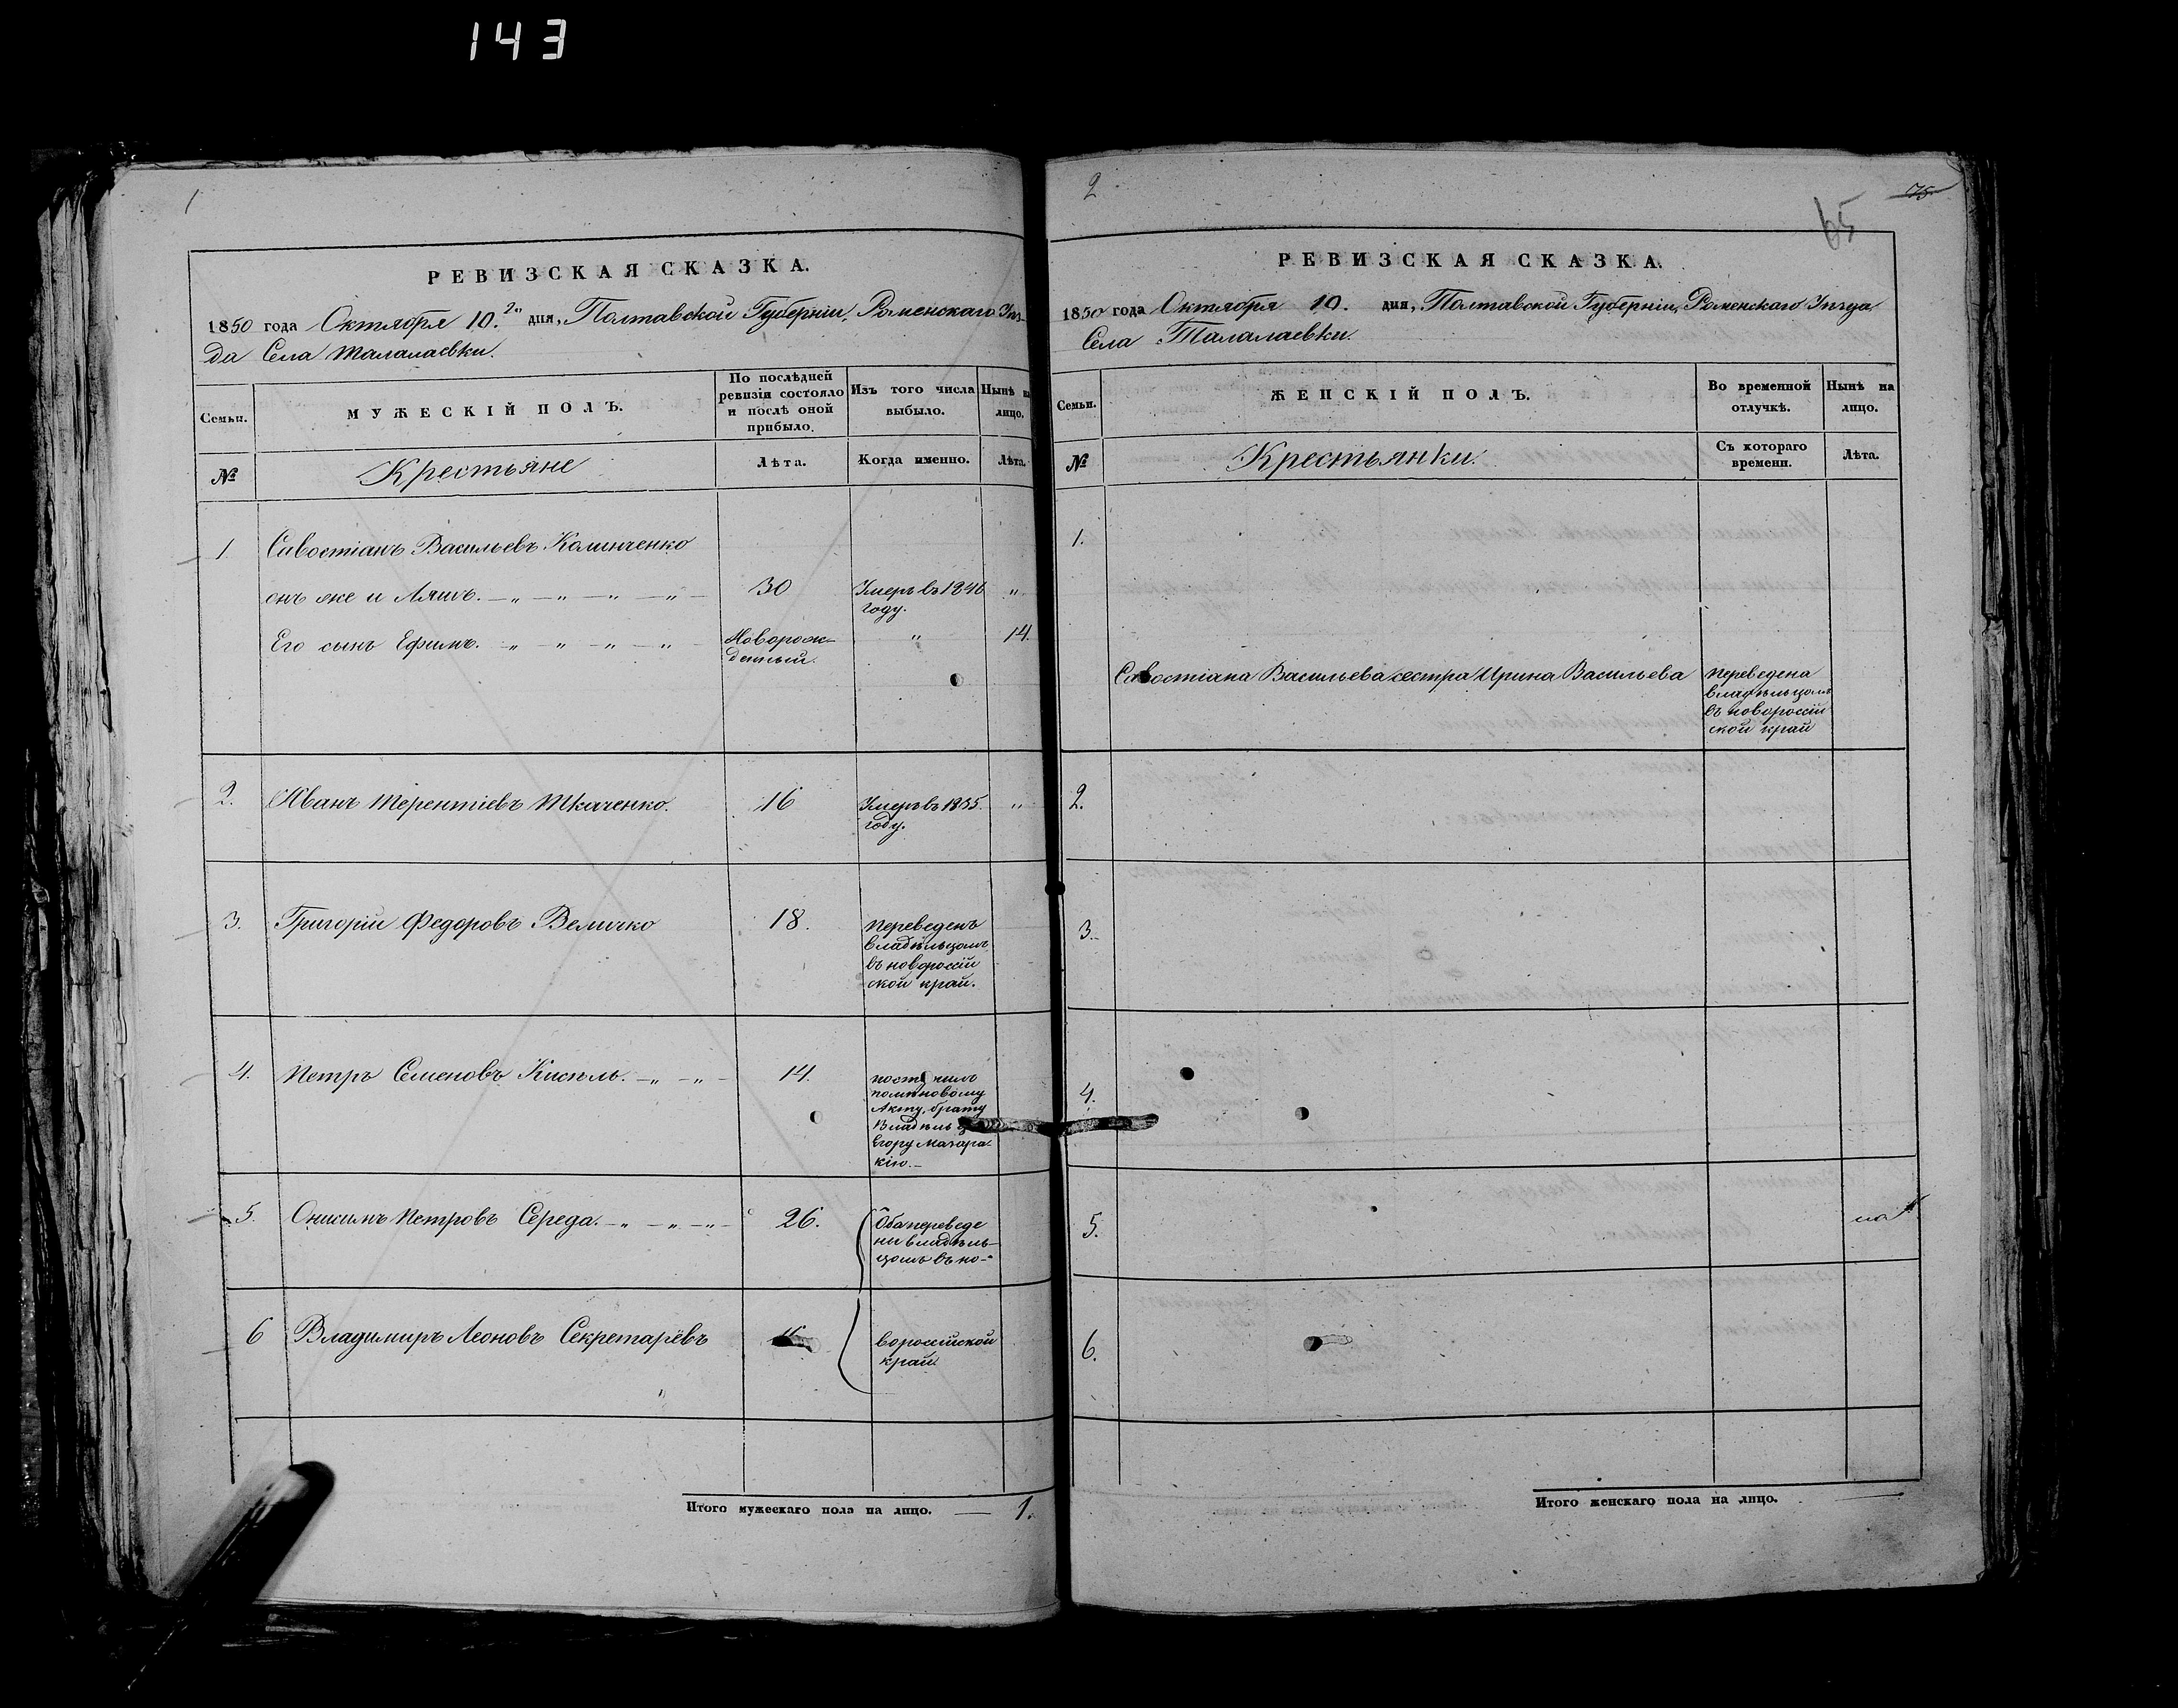 143
1
РЕВИЗСКАЯ СКАЗКА.
1850 года Октября 10.го дня, Полтавской Губерніи, Роменскаго Уѣз-
да Села Талалаевки.
Семьи.
МУЖЕСКІЙ ПОЛЪ.
По послѣдней
ревизіи состояло
и послѣ оной
прибыло.
Изъ того числа
выбыло.
Нынѣ на
лицо.
№
Крестьяне
Лѣта.
Когда именно.
Лѣта.
1
Савостіанъ Васильевъ Калинченко
онъ же и Ляшъ. — „ — „ — „ — „ —
30
Умеръ въ 1846
году.
„
Его сынъ Ефимъ. — „ — „ — „ — „ —
Новорож-
денный.
„
14.
2.
Иванъ Терентіевъ Ткаченко.
16
Умеръ въ 1835.
году.
„
3.
Григорій Федоровъ Величко
18.
Переведенъ
владѣльцомъ
въ новороссій
ской край.
4.
Петръ Семеновъ Кисѣль. — „ — „ —
14.
поступилъ
Акту, брату
Егору Мазара-
кію. —
5.
Онисимъ Петровъ Середа. — „ — „ — „ —
26.
Оба переведе
ни владѣль-
цомъ въ но-
6
Владимиръ Леоновъ Секретарёвъ
вороссійской
край.
Итого мужескаго пола на лицо. — 1.
2
75
65
РЕВИЗСКАЯ СКАЗКА.
1850 года Октября 10. дня, Полтавской Губерніи, Роменскаго Уѣзда
Села Талалаевки.
Семьи.
ЖЕНСКІЙ ПОЛЪ.
Во временной
отлучкѣ.
Нынѣ на
лицо.
№
Крестьянки.
Съ котораго
времени.
Лѣта.
1.
Савостіана Васильева сестра Ирина Васильева
переведена
владѣльцомъ
въ новороссій
ской край
2.
3.
4.
5.
6.
Итого женскаго пола на лицо. —